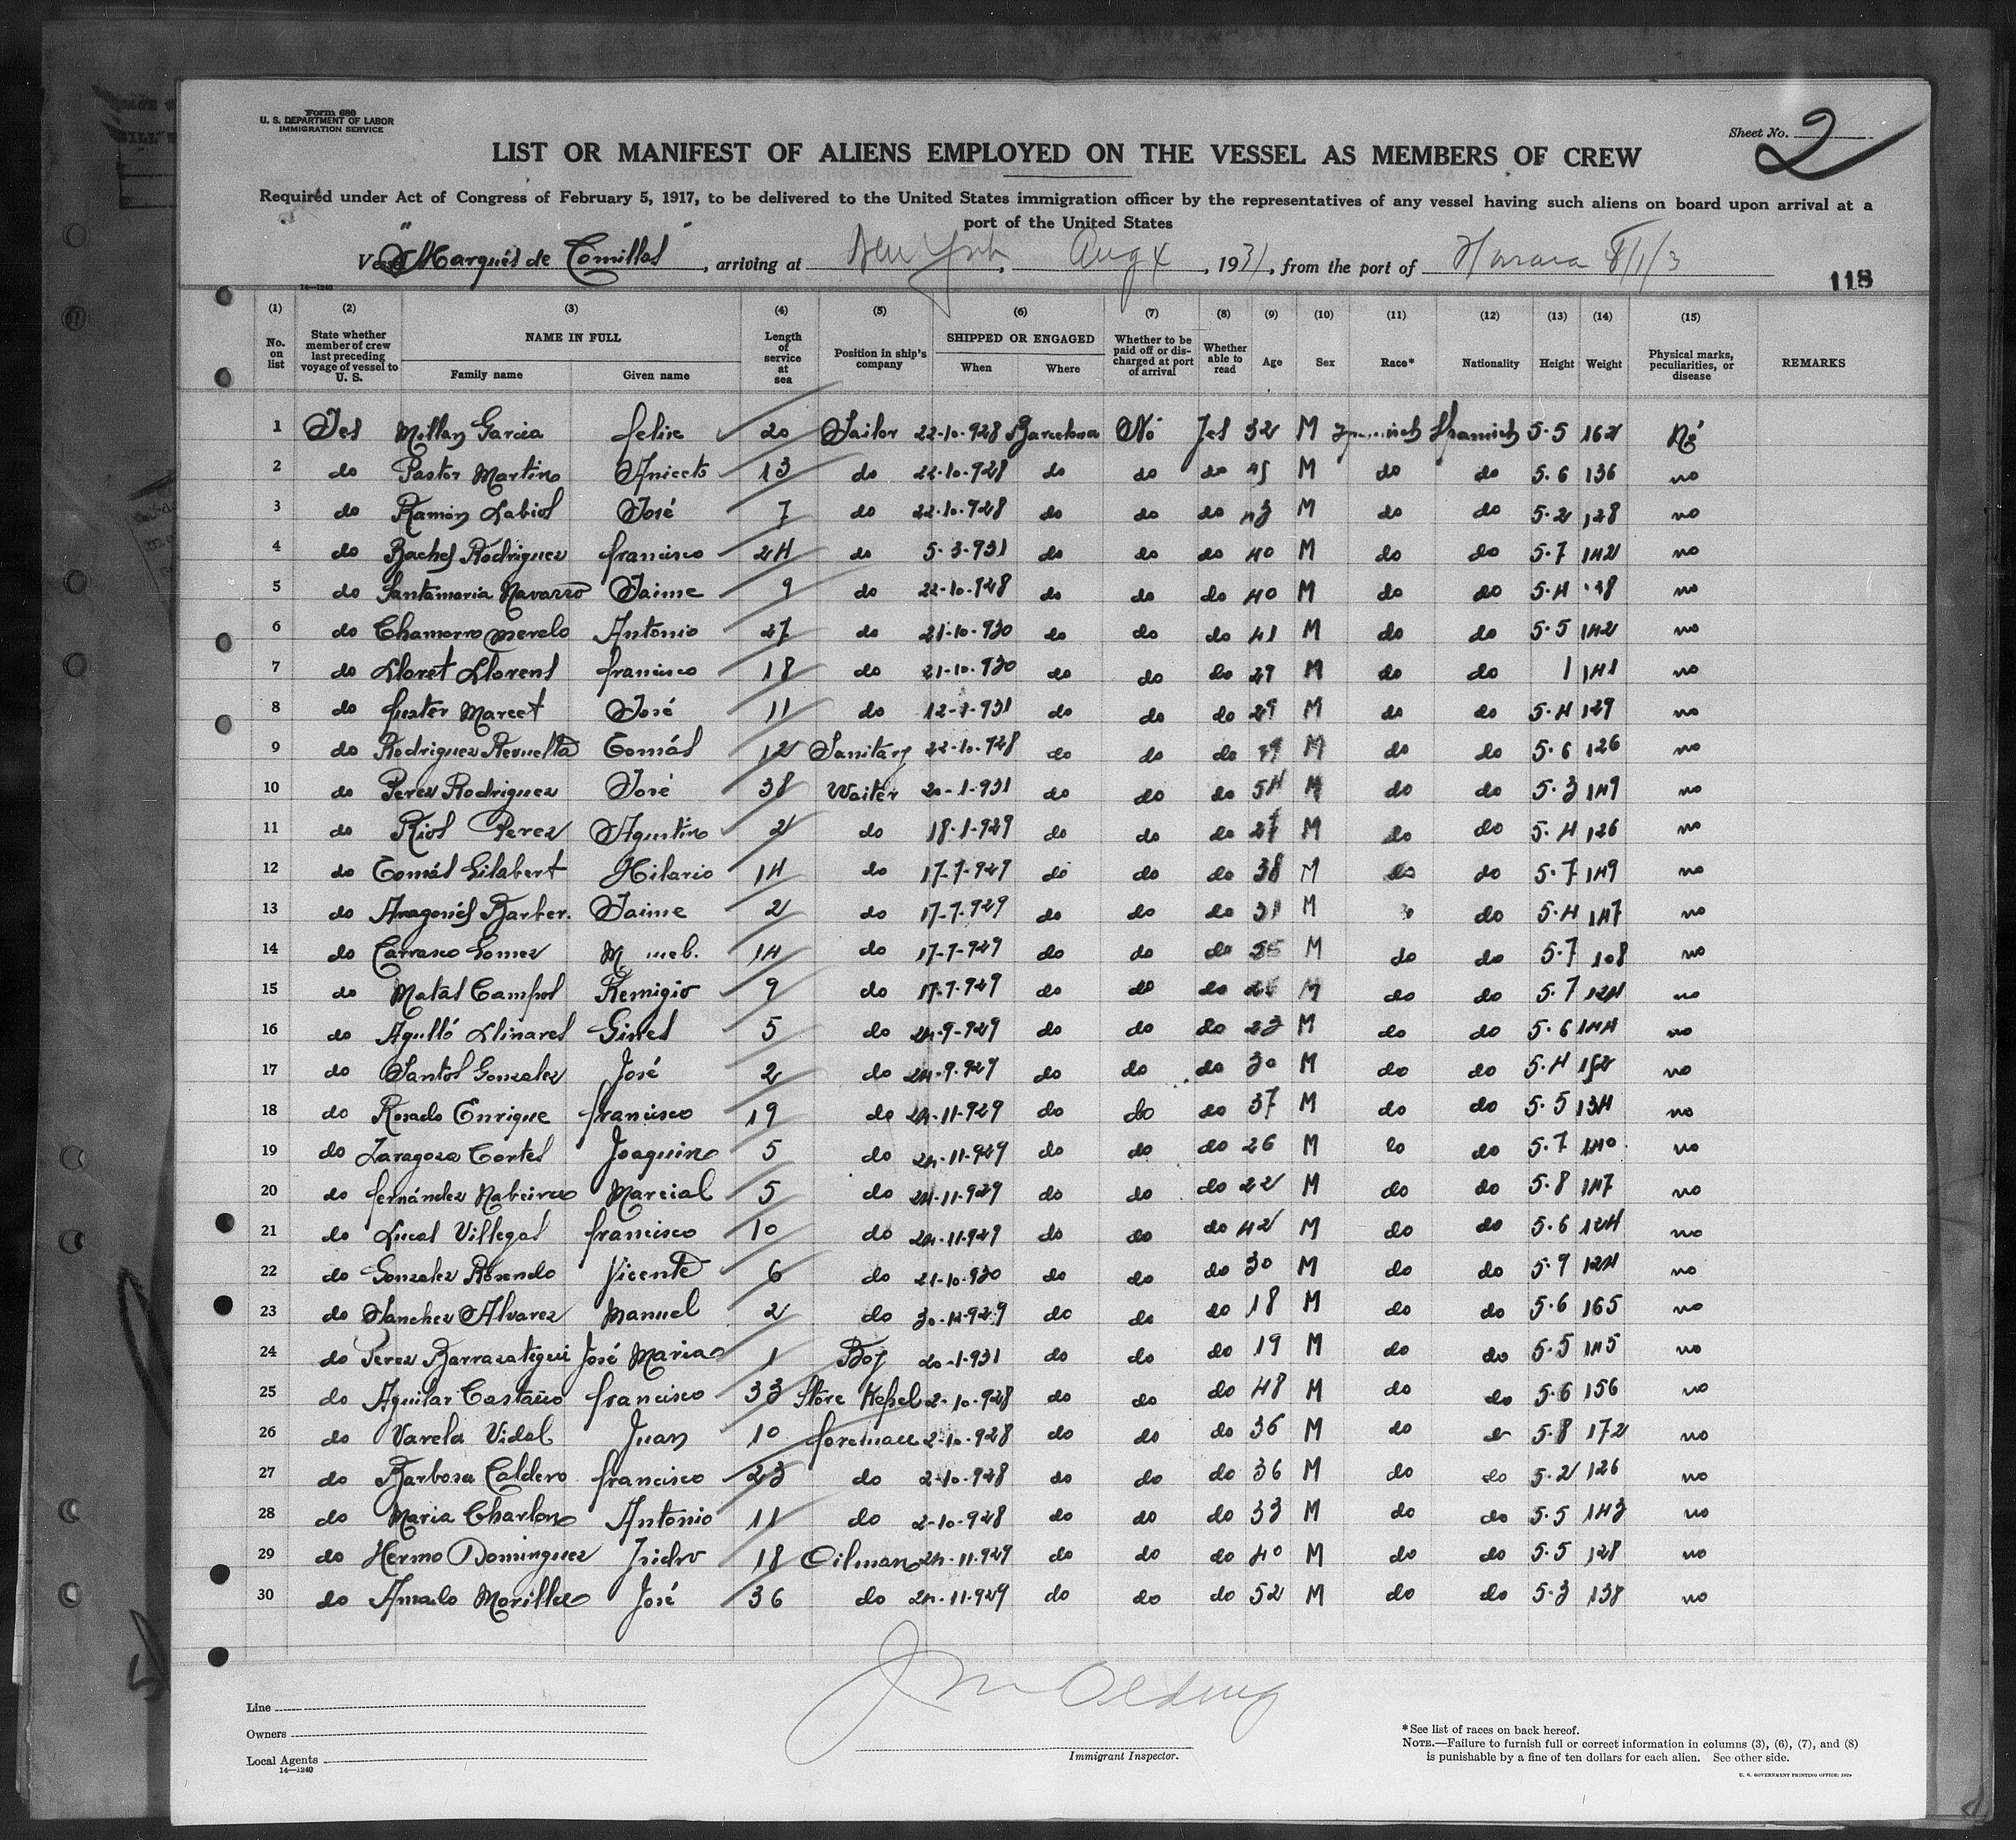 Form 680
U. S. DEPARTMENT OF LABOR
IMMIGRATION SERVICE
Sheet No. 2
LIST OR MANIFEST OF ALIENS EMPLOYED ON THE VESSEL AS MEMBERS OF CREW
Required under Act of Congress of February 5, 1917, to be delivered to the United States immigration officer by the representatives of any vessel having such aliens on board upon arrival at a
port of the United States
"Marqués de Comillas", arriving at New York, Aug 4, 1931, from the port of Havana
118
14—1240
(1) (2) (3) (4) (5) (6) (7) (8) (9) (10) (11) (12) (13) (14) (15)
No. on list State whether member of crew last preceding voyage of vessel to U. S. NAME IN FULL Family name Given name Length of service at sea Position in ship's company SHIPPED OR ENGAGED When Where Whether to be paid off or discharged at port of arrival Whether able to read Age Sex Race* Nationality Height Weight Physical marks, peculiarities, or disease REMARKS
1 Yes Millan Garcia Felix 20 Sailor 22-10-928 Barcelona No Yes 32 M Spanish Spanish 5.5 162 No
2 do Pastor Martino Aniceto 13 do 22-10-928 do do do 45 M do do 5.6 136 no
3 do Ramón Labios José 7 do 22-10-928 do do do 43 M do do 5.2 128 no
4 do Baches Rodriguez francisco 24 do 5-3-931 do do do 40 M do do 5.7 142 no
5 do Santamaria Navarro Jaime 9 do 22-10-928 do do do 40 M do do 5.4 38 no
6 do Chamorro Merelo Antonio 27 do 21-10-930 do do do 41 M do do 5.5 142 no
7 do Lloret Llorens francisco 18 do 21-10-930 do do do 29 M do do 141 no
8 do fuster Marcet José 11 do 12-1-931 do do do 29 M do do 5.4 129 no
9 do Rodriguez Revuelta Tomás 12 Sanitary 22-10-928 do do do M do do 5.6 126 no
10 do Perez Rodriguez José 38 Waiter 20-1-931 do do do 54 M do do 5.3 149 no
11 do Rios Perez Agustino 2 do 18-1-929 do do do 27 M do do 5.4 126 no
12 do Tomás Gilabert Hilario 14 do 17-7-929 do do do 38 M do do 5.7 149 no
13 do Aragonés Barber. Jaime 2 do 17-7-929 do do do 31 M do 5.4 147 no
14 do Carrasco Gomez 14 do 17-7-929 do do do M do do 5.7 108 no
15 do Matas Campos Remigio 9 do 17-7-929 do do do M do do 5.7 124 no
16 do Agulló Llinares Gines 5 do 24-9-929 do do do 23 M do do 5.6 144 no
17 do Santos Gonzalez José 2 do 24-9-929 do do do 30 M do do 5.4 152 no
18 do Rosado Enrique francisco 19 do 24-11-929 do do do 37 M do do 5.5 134 no
19 do Zaragoza Cortes Joaquino 5 do 24-11-929 do do do 26 M do do 5.7 140 no
20 do fernández Nabeira Marcial 5 do 24-11-929 do do do 22 M do do 5.8 147 no
21 do Lucas Villegas francisco 10 do 24-11-929 do do do 42 M do do 5.6 124 no
22 do Gonzalez Rosendo Vicente 6 do 21-10-930 do do do 30 M do do 5.9 124 no
23 do Sanchez Alvarez Manuel 2 do 30-12-929 do do do 18 M do do 5.6 165 no
24 do Perez Barrazategui José Maria 1 Boy 20-1-931 do do do 19 M do do 5.5 115 no
25 do Aguilar Castaño francisco 33 Store 2-10-928 do do do 48 M do do 5.6 156 no
26 do Varela Vidal Juan 10 foreman 2-10-928 do do do 36 M do do 5.8 172 no
27 do Barbosa Caldero francisco 23 do 2-10-928 do do do 36 M do do 5.2 126 no
28 do Maria Charlon Antonio 11 do 2-10-928 do do do 33 M do do 5.5 143 no
29 do Hermo Dominguez Isidro 18 Oilman 24-11-929 do do do 40 M do do 5.5 128 no
30 do Amado Morilla José 36 do 24-11-929 do do do 52 M do do 5.3 138 no
Line
Owners
Local Agents
14—1240
Immigrant Inspector.
*See list of races on back hereof.
NOTE.—Failure to furnish full or correct information in columns (3), (6), (7), and (8)
is punishable by a fine of ten dollars for each alien. See other side.
U. S. GOVERNMENT PRINTING OFFICE: 1929